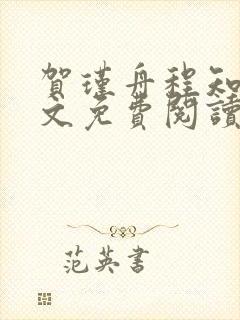 賀瑾舟程知
文免費閱讀
范英書